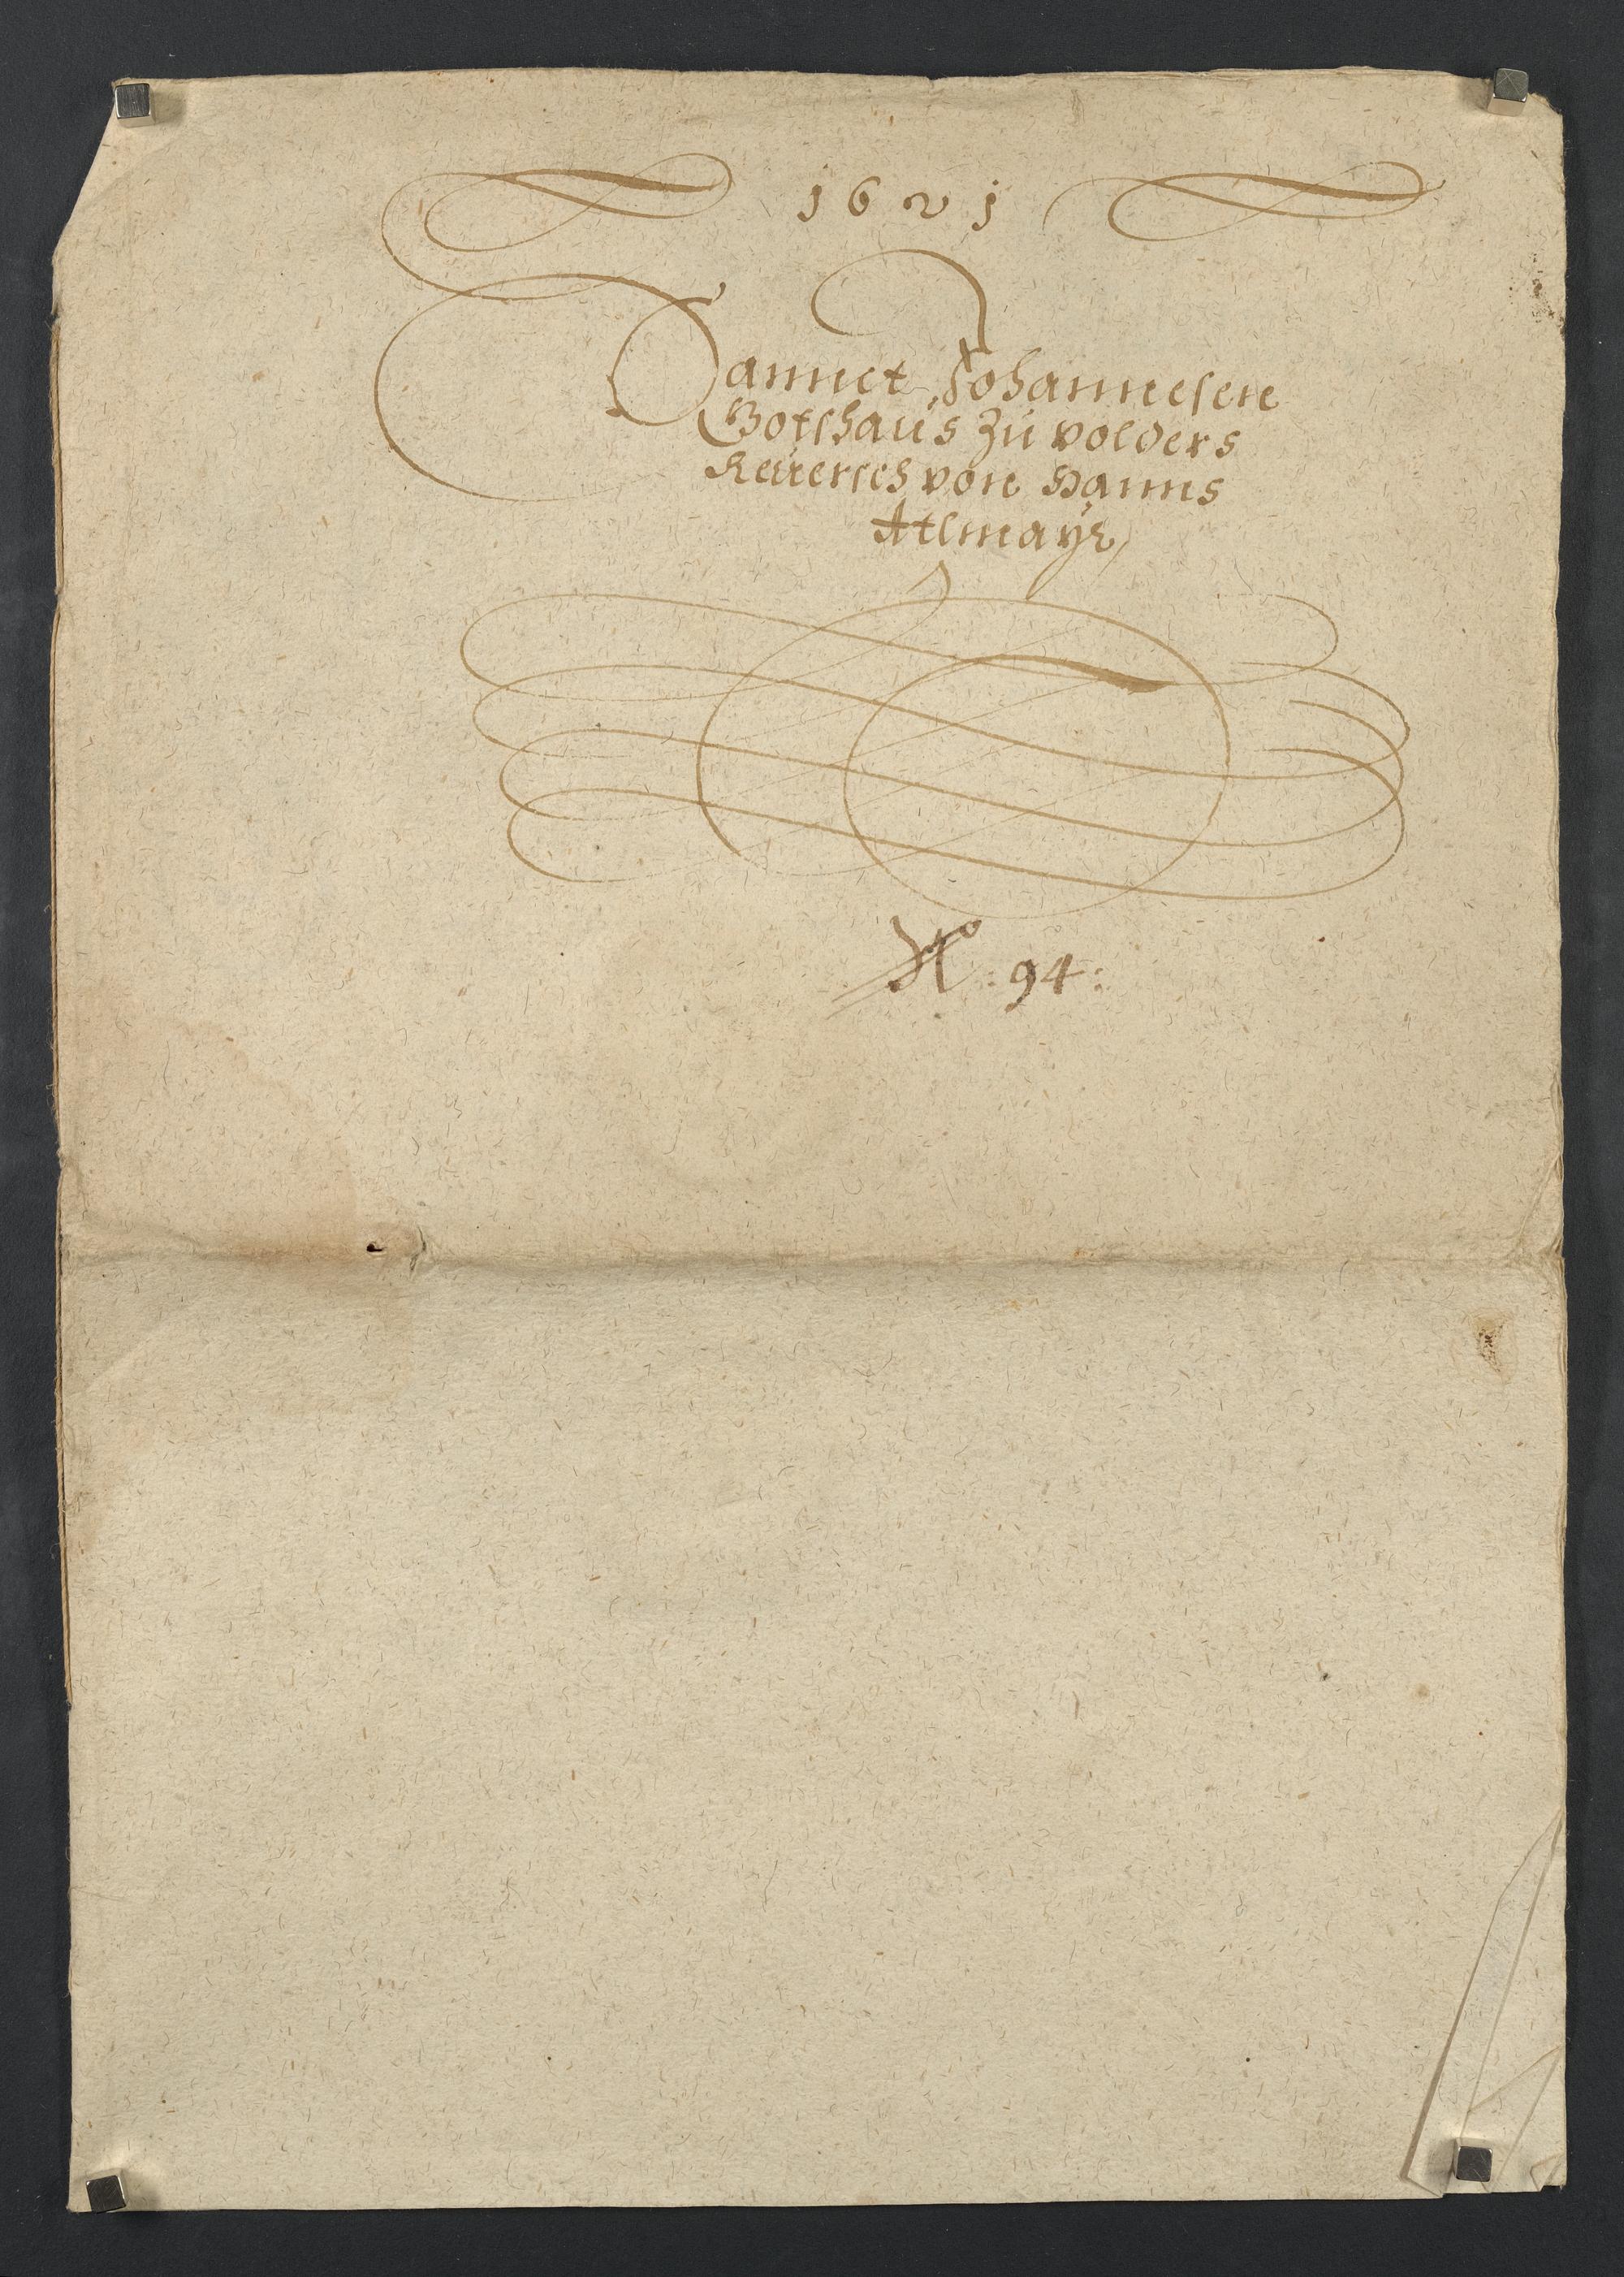 1621
Sannct Johannesen
Gotshaus zu volders
Reverses von Hanns
Atlmayr
No: 94: